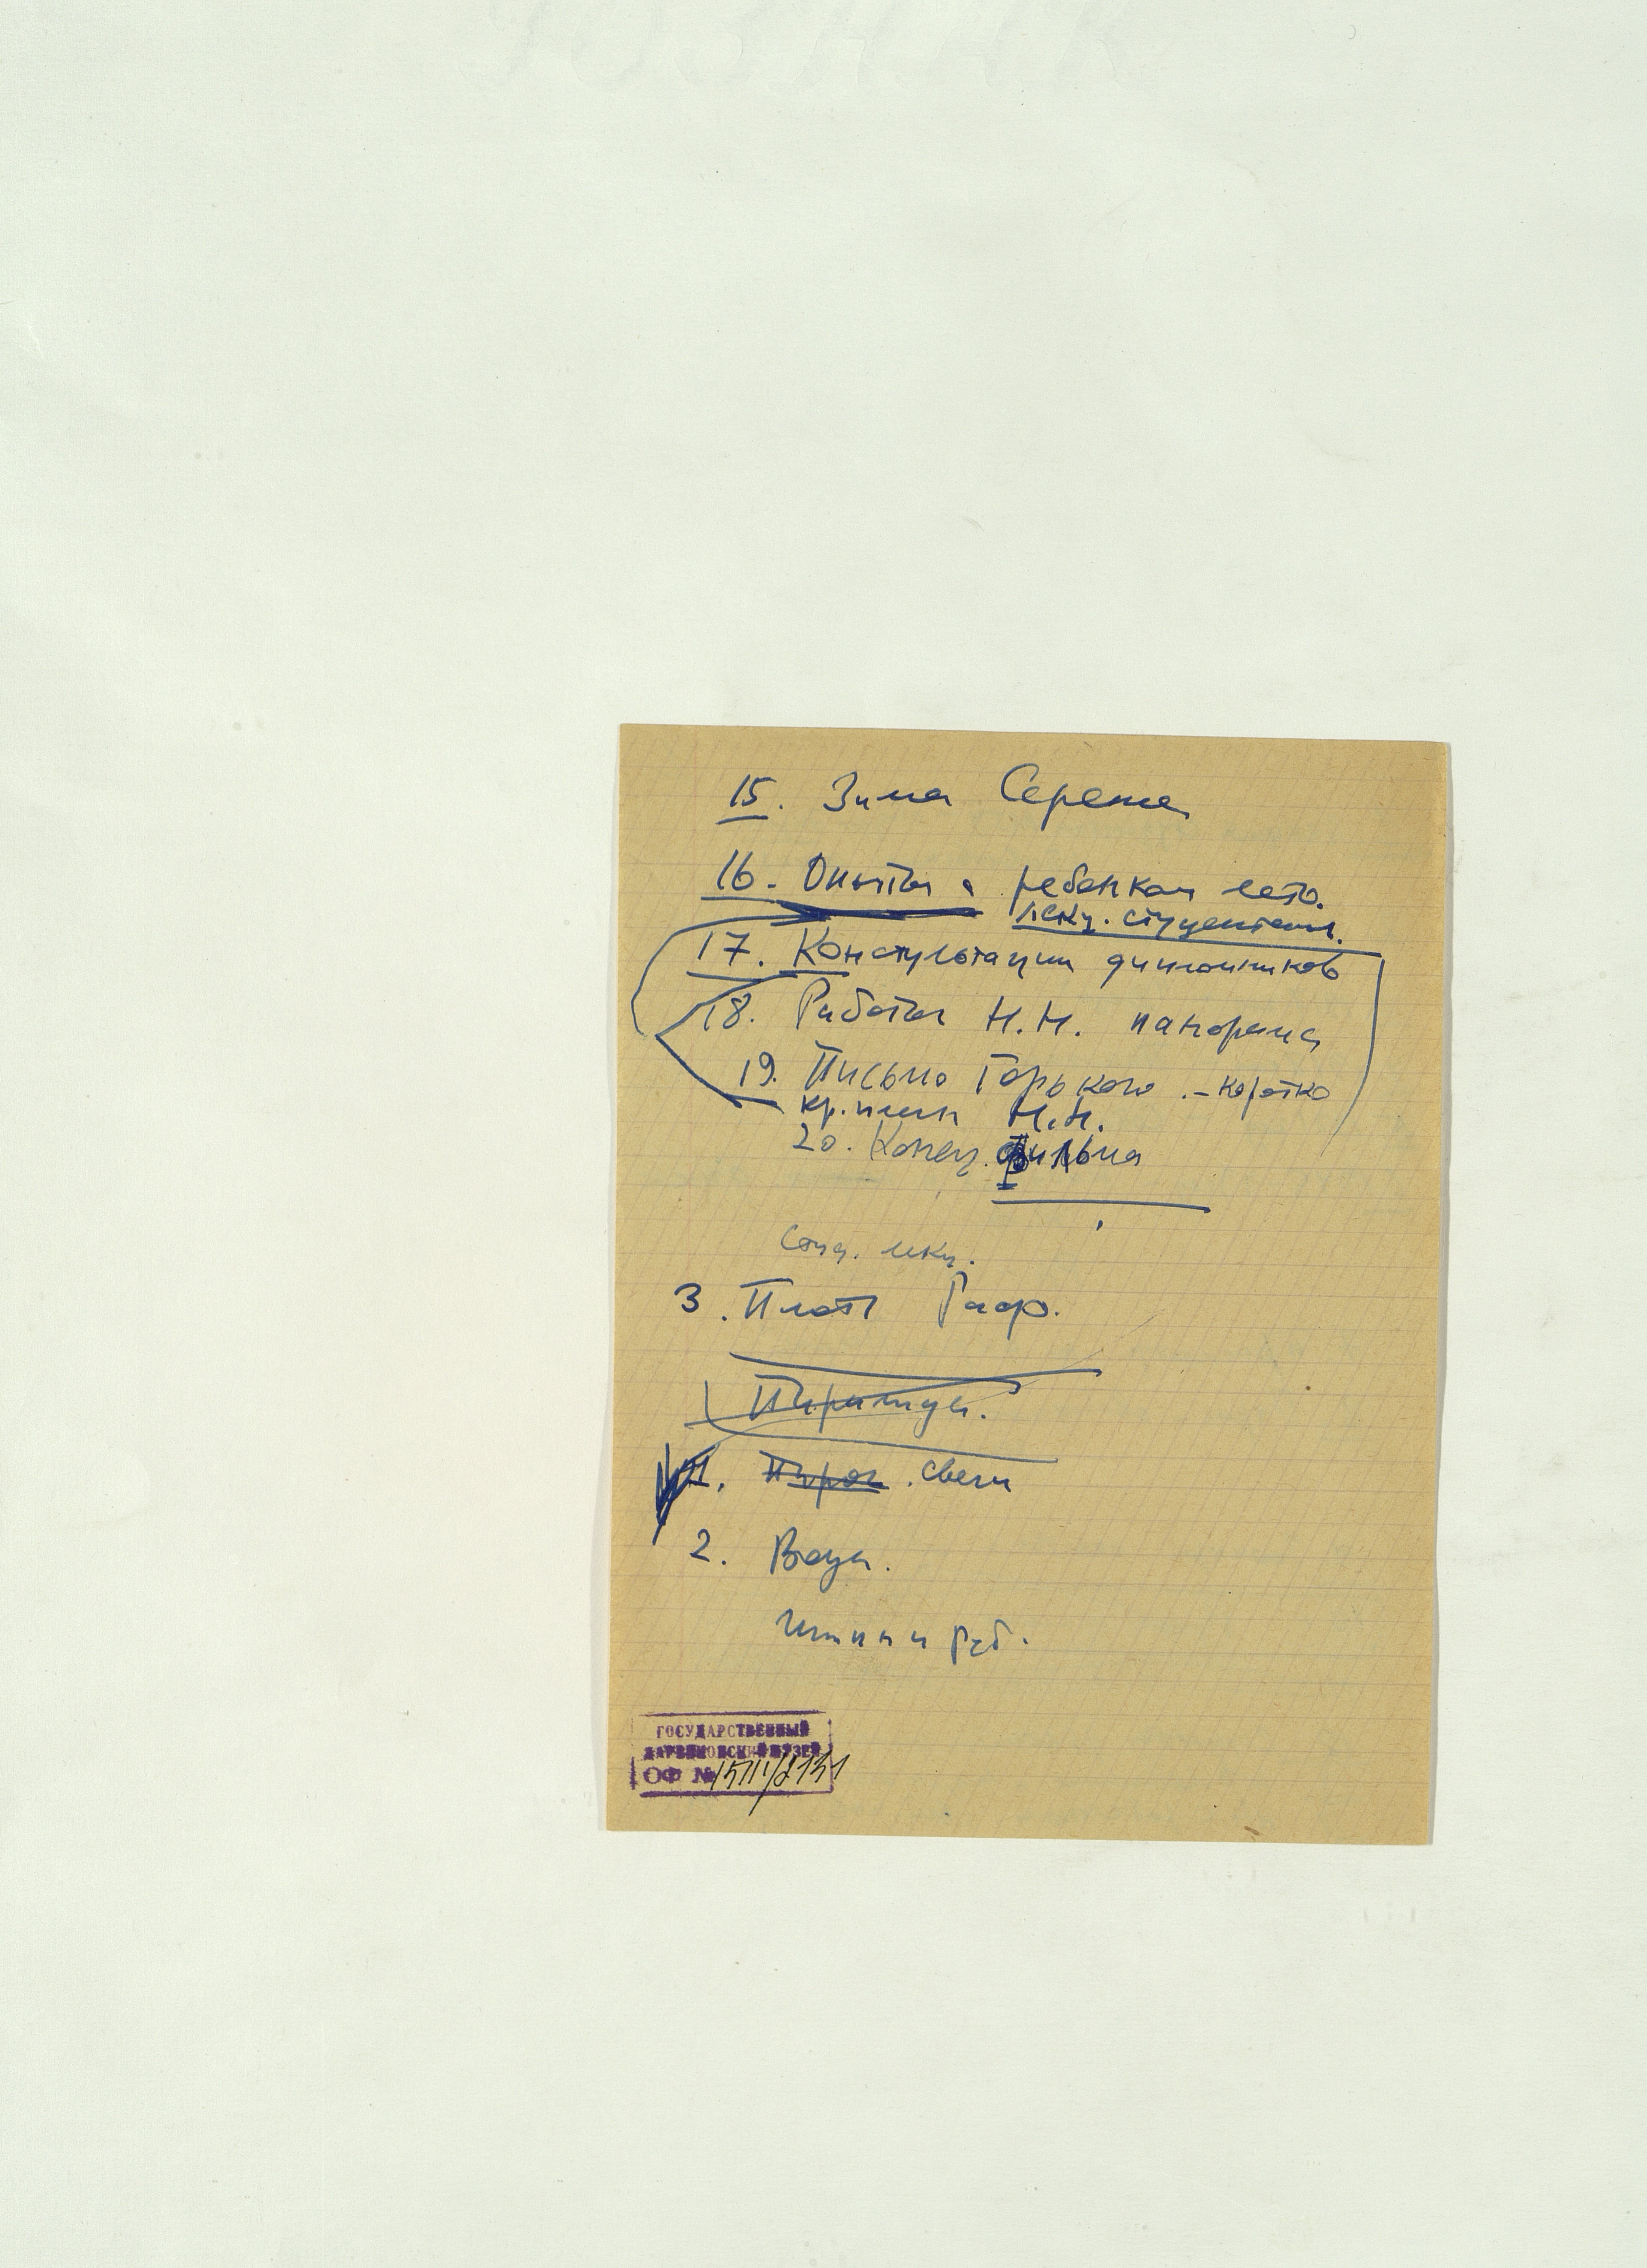 15. Зима Сережа
16. Опыты с ребенком лето.
лекц. студентам.
17. Констультации дипломников
18. Работы Н.Н. панорама
19. Письмо Горького. - коротко
кр. план Н.Н.
20. Конец. фильма
лекц.
3. Раф.
1. свет
2. Воды.
ГОСУДАРСТВЕННЫЙ
ДАРВИНОВСКИЙ МУЗЕЙ
ОФ №